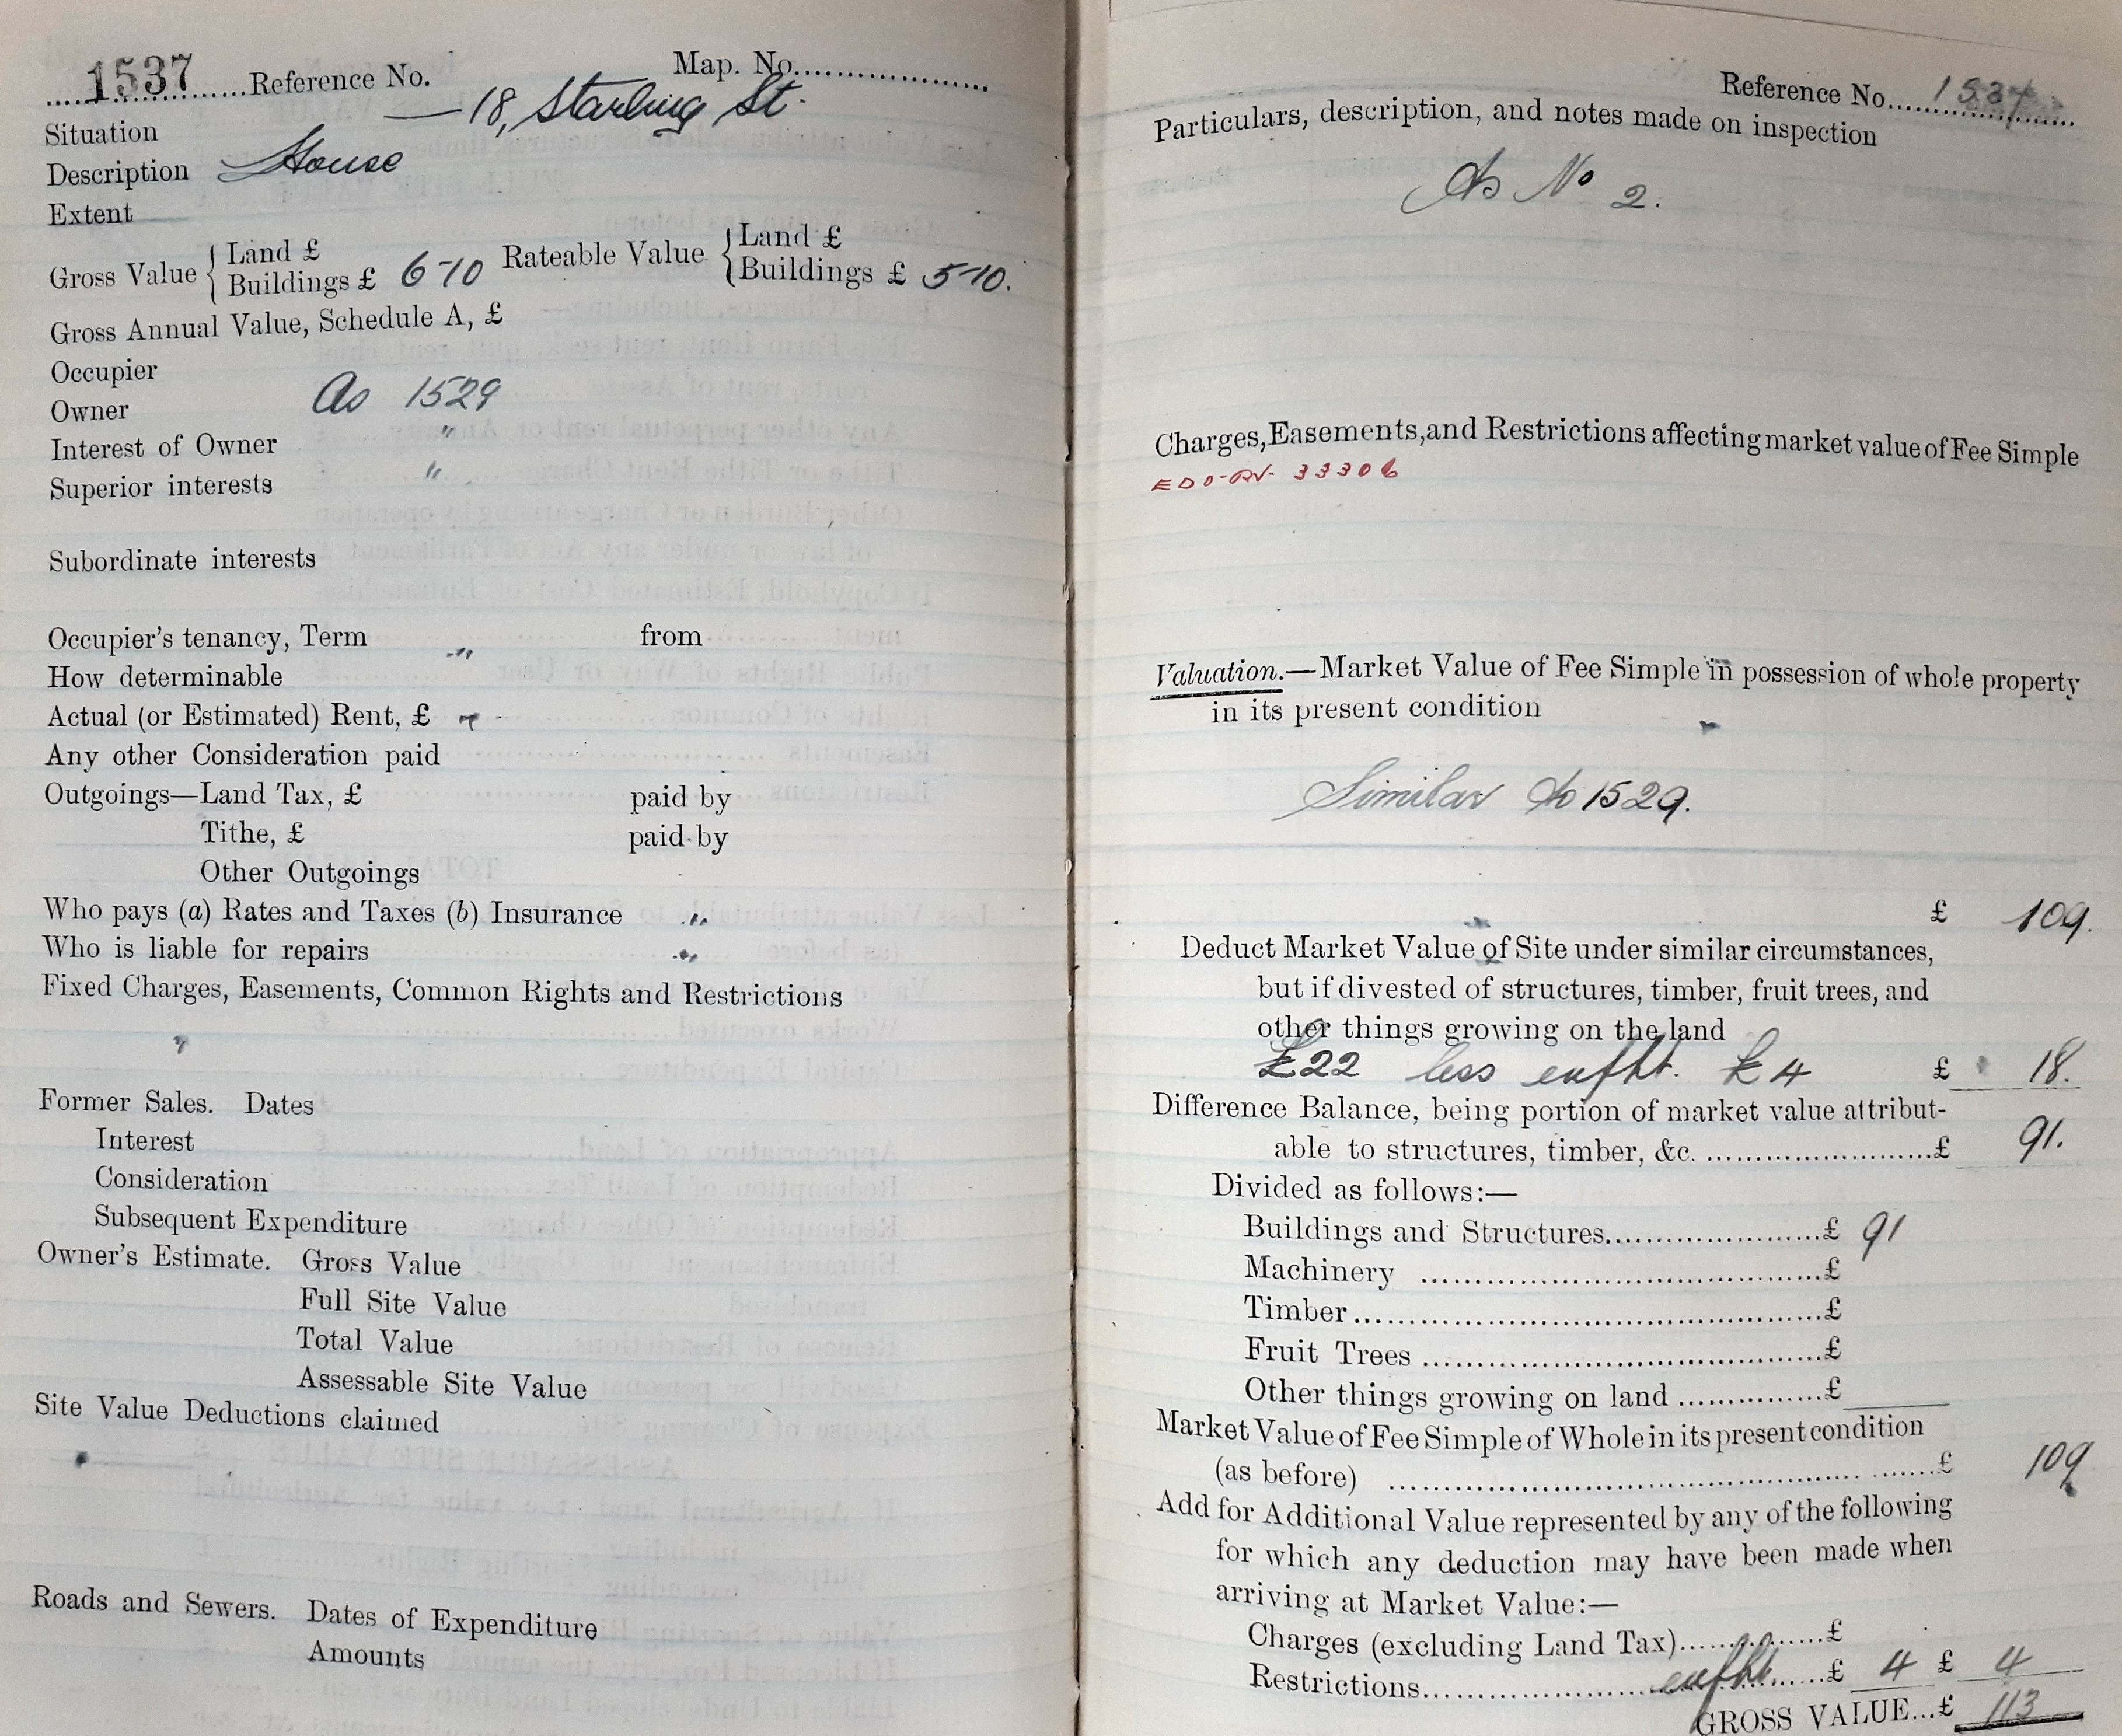 1537 Reference No. Map. No.
Situation — 18, Starling St.
Description House
Extent
Gross Value { Land £ Rateable Value { Land £
Buildings £ 6-10 Buildings £ 5-10.
Gross Annual Value, Schedule A, £
Occupier
Owner As 1529
Interest of Owner "
Superior interests "
Subordinate interests
Occupier's tenancy, Term " from
How determinable
Actual (or Estimated) Rent, £ "
Any other Consideration paid
Outgoings—Land Tax, £ paid by
Tithe, £ paid by
Other Outgoings
Who pays (a) Rates and Taxes (b) Insurance "
Who is liable for repairs "
Fixed Charges, Easements, Common Rights and Restrictions
"
Former Sales. Dates
Interest
Consideration
Subsequent Expenditure
Owner's Estimate. Gross Value
Full Site Value
Total Value
Assessable Site Value
Site Value Deductions claimed
Roads and Sewers. Dates of Expenditure
Amounts
Reference No. 1537
Particulars, description, and notes made on inspection
As No 2.
Charges, Easements, and Restrictions affecting market value of Fee Simple
33306
Valuation.—Market Value of Fee Simple in possession of whole property
in its present condition
Similar to 1529.
£ 109.
Deduct Market Value of Site under similar circumstances,
but if divested of structures, timber, fruit trees, and
other things growing on the land
£22 less eufht. £4 £ 18.
Difference Balance, being portion of market value attribut-
able to structures, timber, &c. £ 91.
Divided as follows:—
Buildings and Structures £ 91
Machinery £
Timber £
Fruit Trees £
Other things growing on land £
Market Value of Fee Simple of Whole in its present condition
(as before) £ 109
Add for Additional Value represented by any of the following
for which any deduction may have been made when
arriving at Market Value:—
Charges (excluding Land Tax) £
Restrictions eufht £ 4 £ 4
GROSS VALUE...£ 113